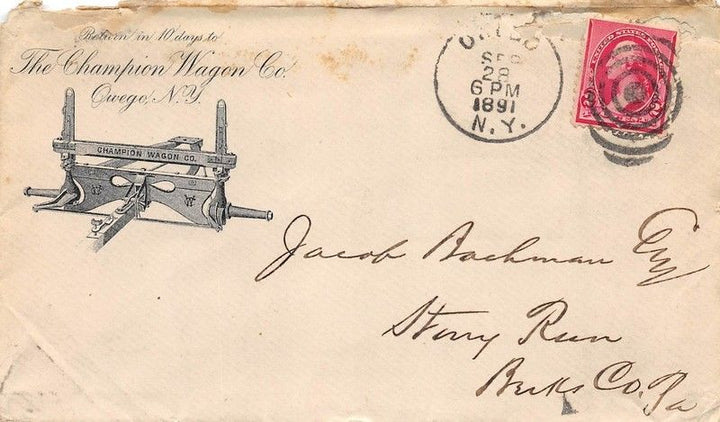 Return in 10 days to
The Champion Wagon Co.
Owego, N.Y.
CHAMPION WAGON CO.
SEP
28
6 PM
1891
N.Y.
UNITED STATES
Jacob Bachman Esq
Stony Run
Berks Co. Pa